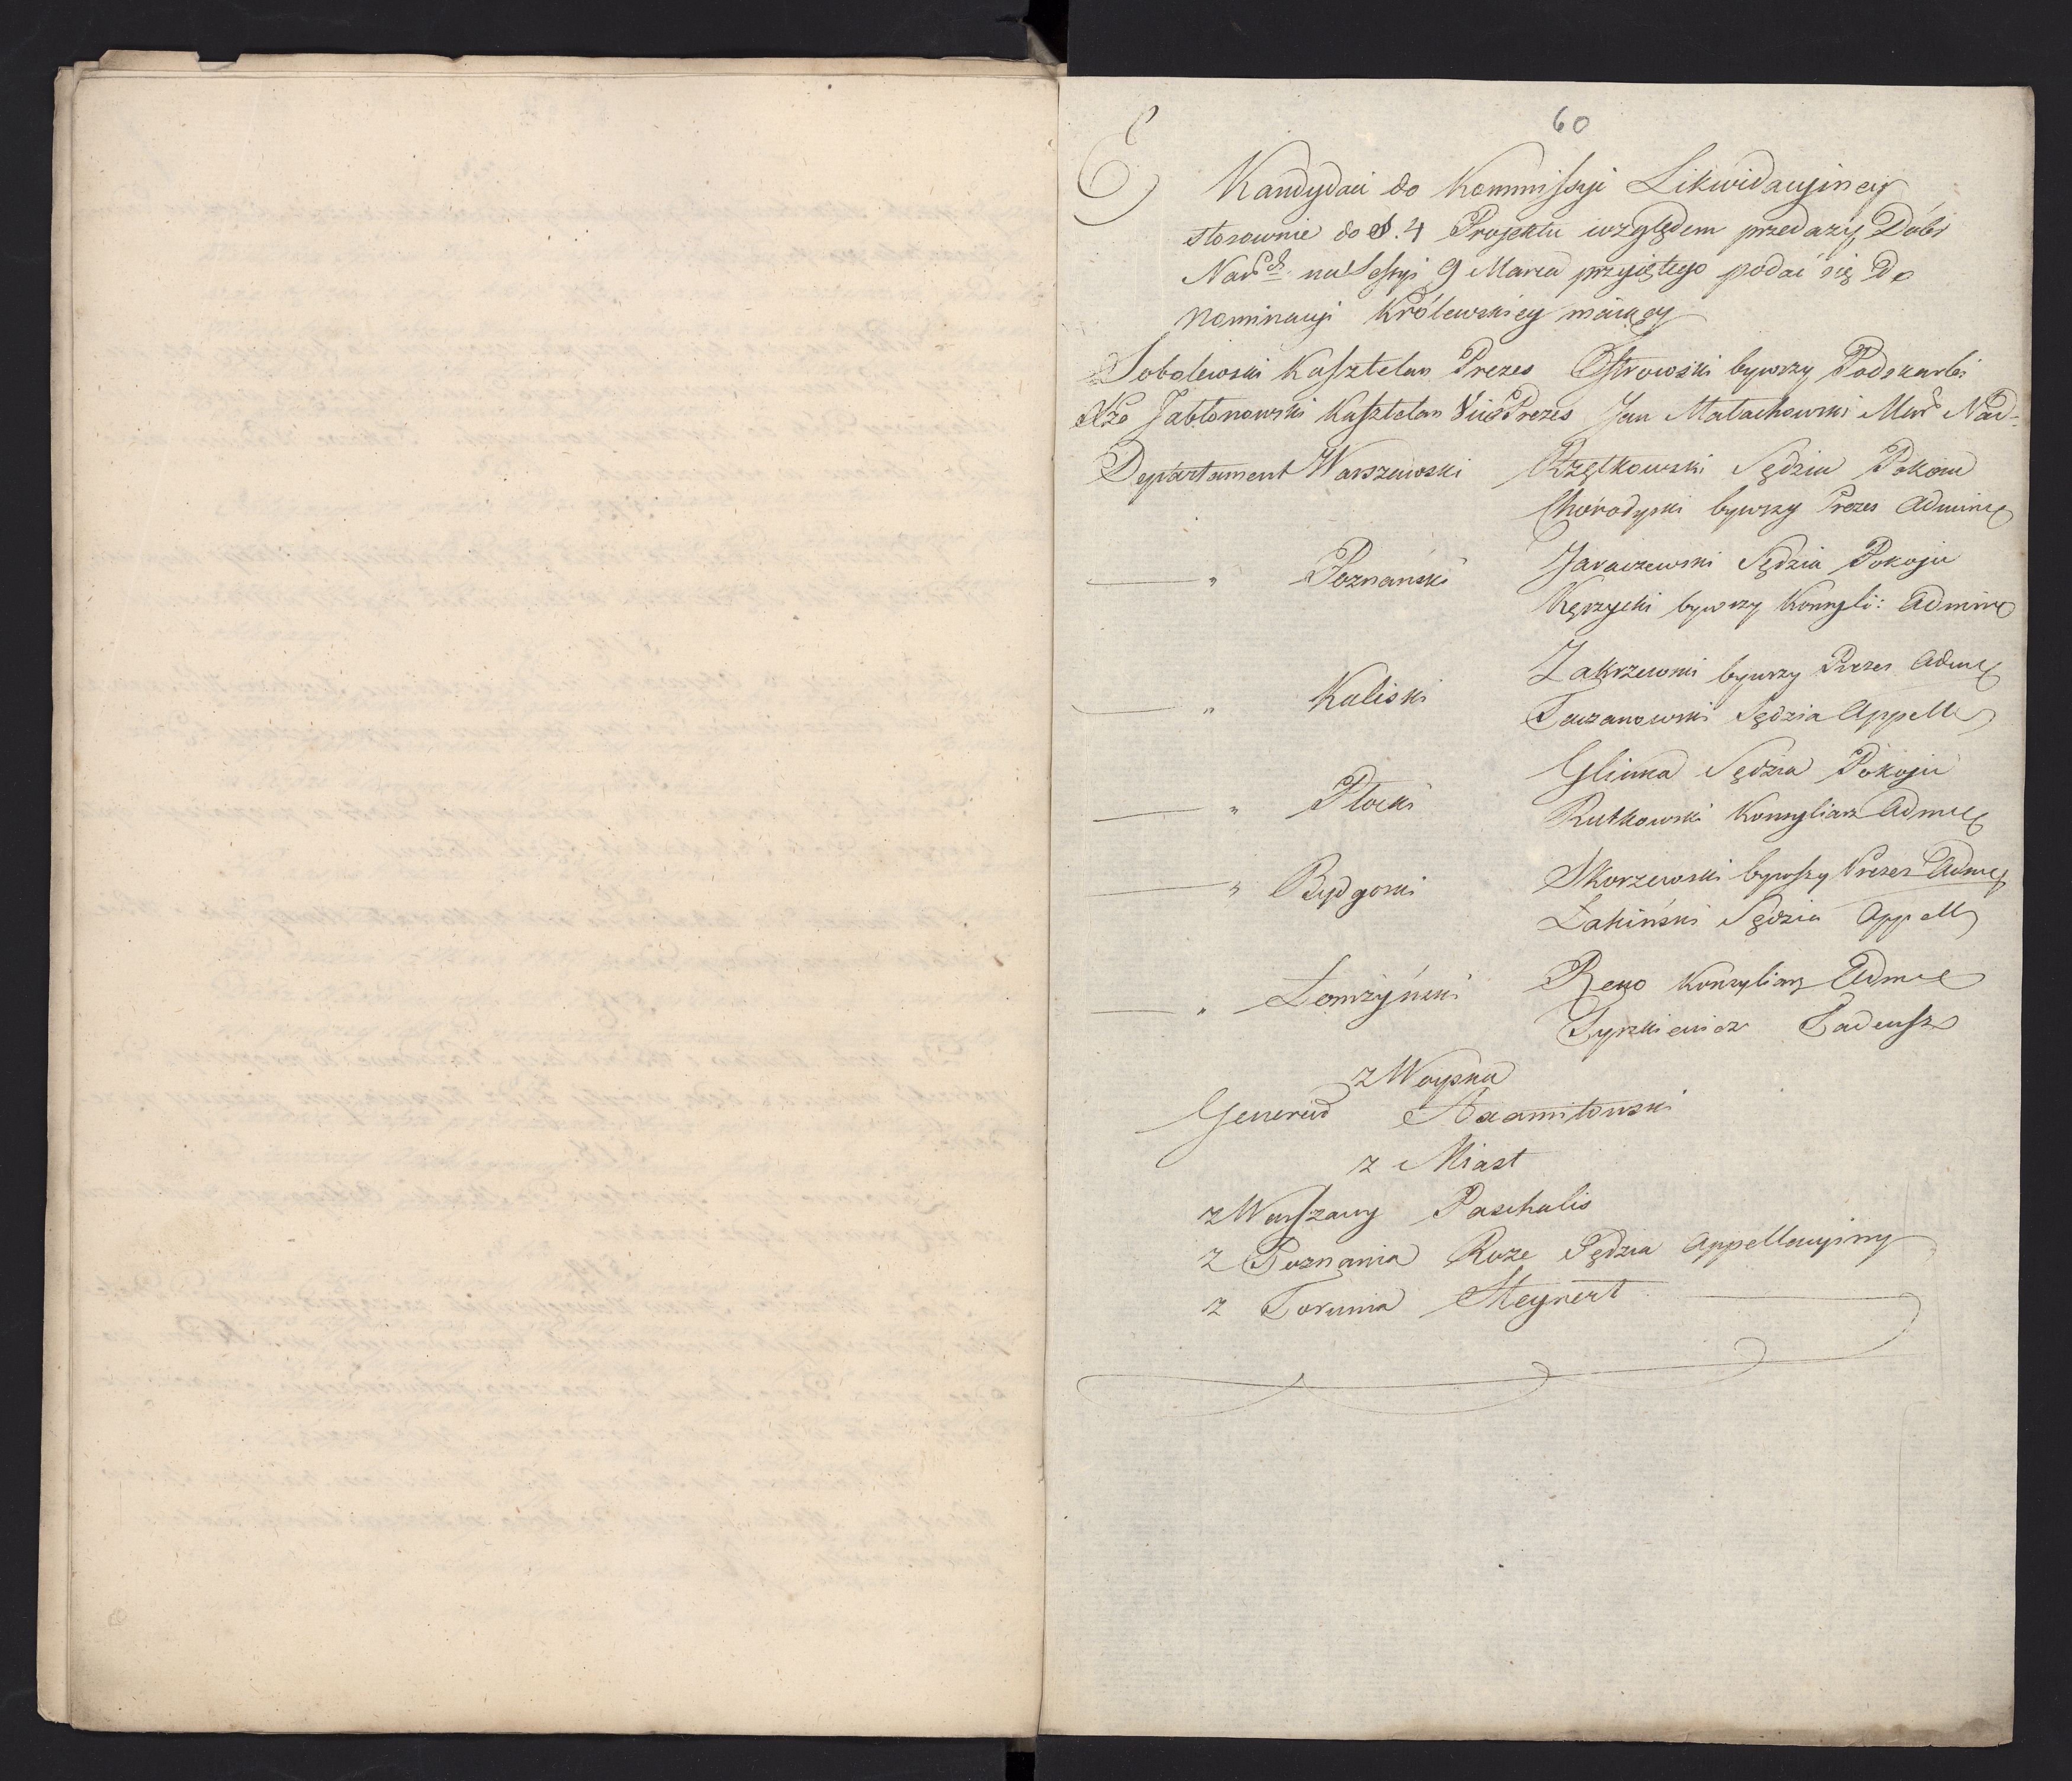 60
E
Kandydaci do Kommissyi Likwidacyiney
stosownie do §. 4 Projektu względem przedaży Dóbr
Nard̃ch na Sessyi 9 Marca przyiętego podać się do
Nominacyi Królewskiey maiący
Sobolewski Kasztelan Prezes Ostrowski bywszy Podskarbi
Xże Jabłonowski Kasztelan Vice Prezes Jan Małachowski Mar. Nad
Departament Warszawski Rzętkowski Sędzia Pokoiu
Choródyski bywszy Prezes Admine
" Poznański Jaraczewski Sędzia Pokoju
Kęszycki bywszy Konsyli: Admine
" Kaliski Zakrzewski bywszy Prezes Adme
Taczanowski Sędzia Appell
" Płocki Glinka Sędzia Pokoju
Rutkowski Konsyliarz Adme
" Bydgoski Skorzewski bywszy Prezes Adme
Łakiński Sędzia Appell
" Łomżyński Rego Konsyliarz Adme
Tyszkiewicz Tadeusz
z Woyska
Generał Axamitowski
z Miast
z Warszawy Paschalis
z Poznania Roze Sędzia Appellacyiny
z Torunia Meynert